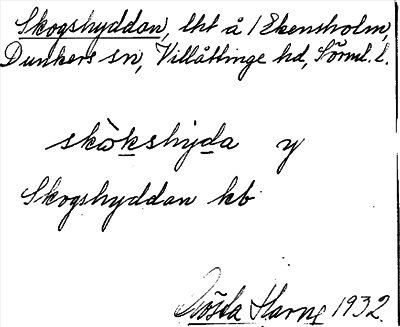 Skogshyddan, lht å /Ekensholm,
Dunkers sn, Villåttinge hd, Sörml. l.
skòkshyda y
Skogshyddan kb
Gösta Harne 1932.